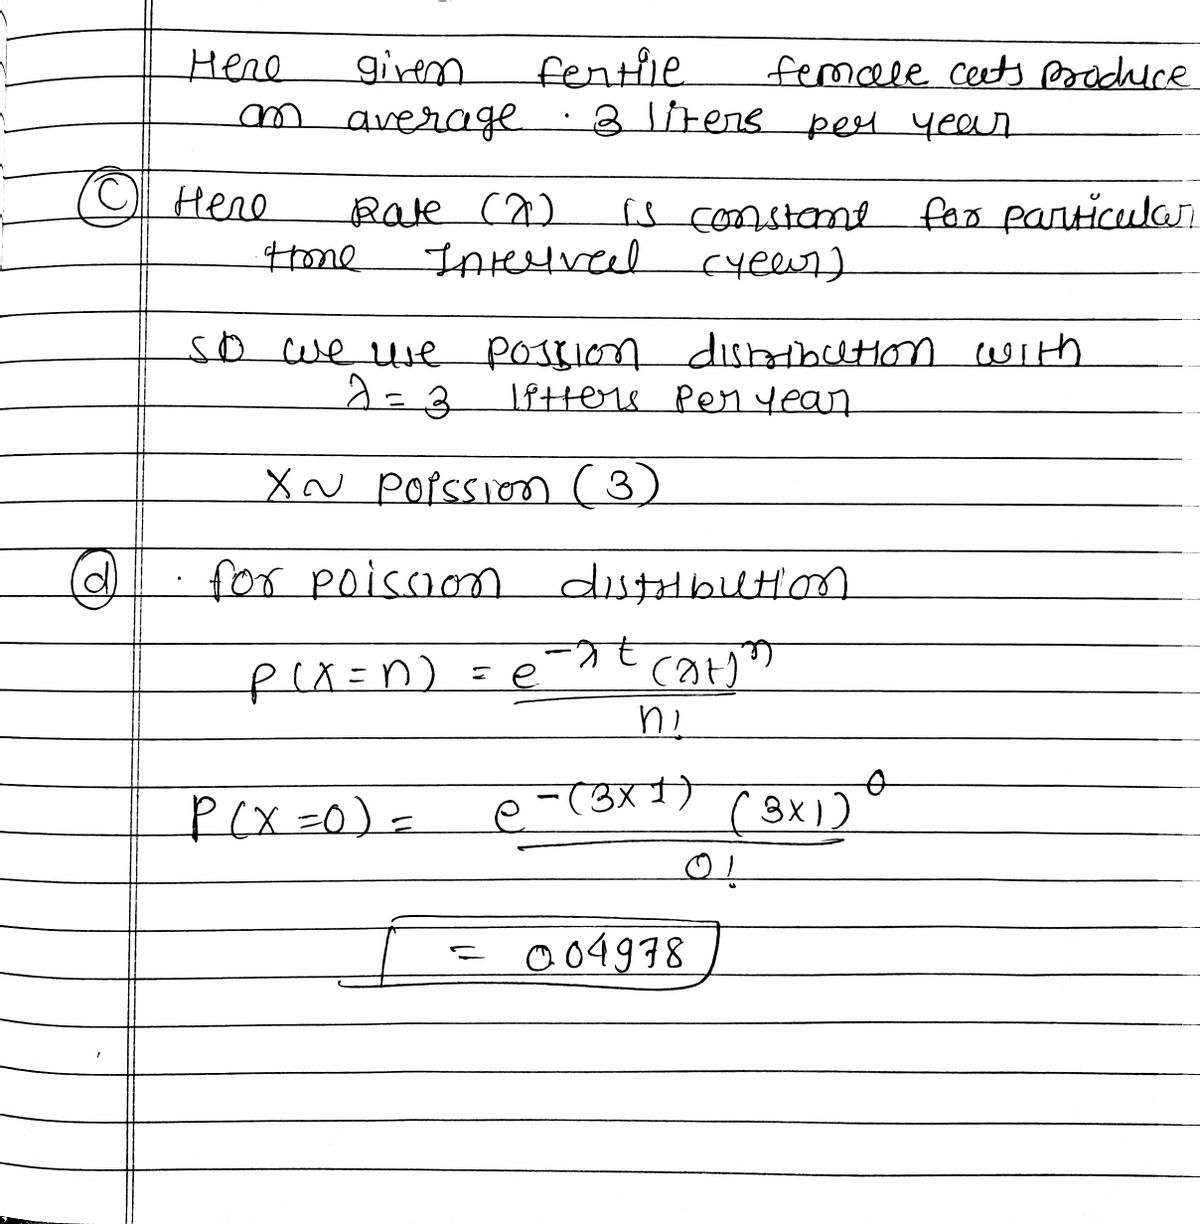 Here given fertile female cats produce
an average . 3 liters per year
(C) Here Rate (λ) is constant for particular
time Interval (year)
so we use possion distribution with
λ = 3 litters per year
X ~ poission (3)
(d) . for poission distribution
P(X=n) = e^{-λt} (λt)^n
n!
P(X=0) = e^{-(3×1)} (3×1)^0
0!
= 0.04978